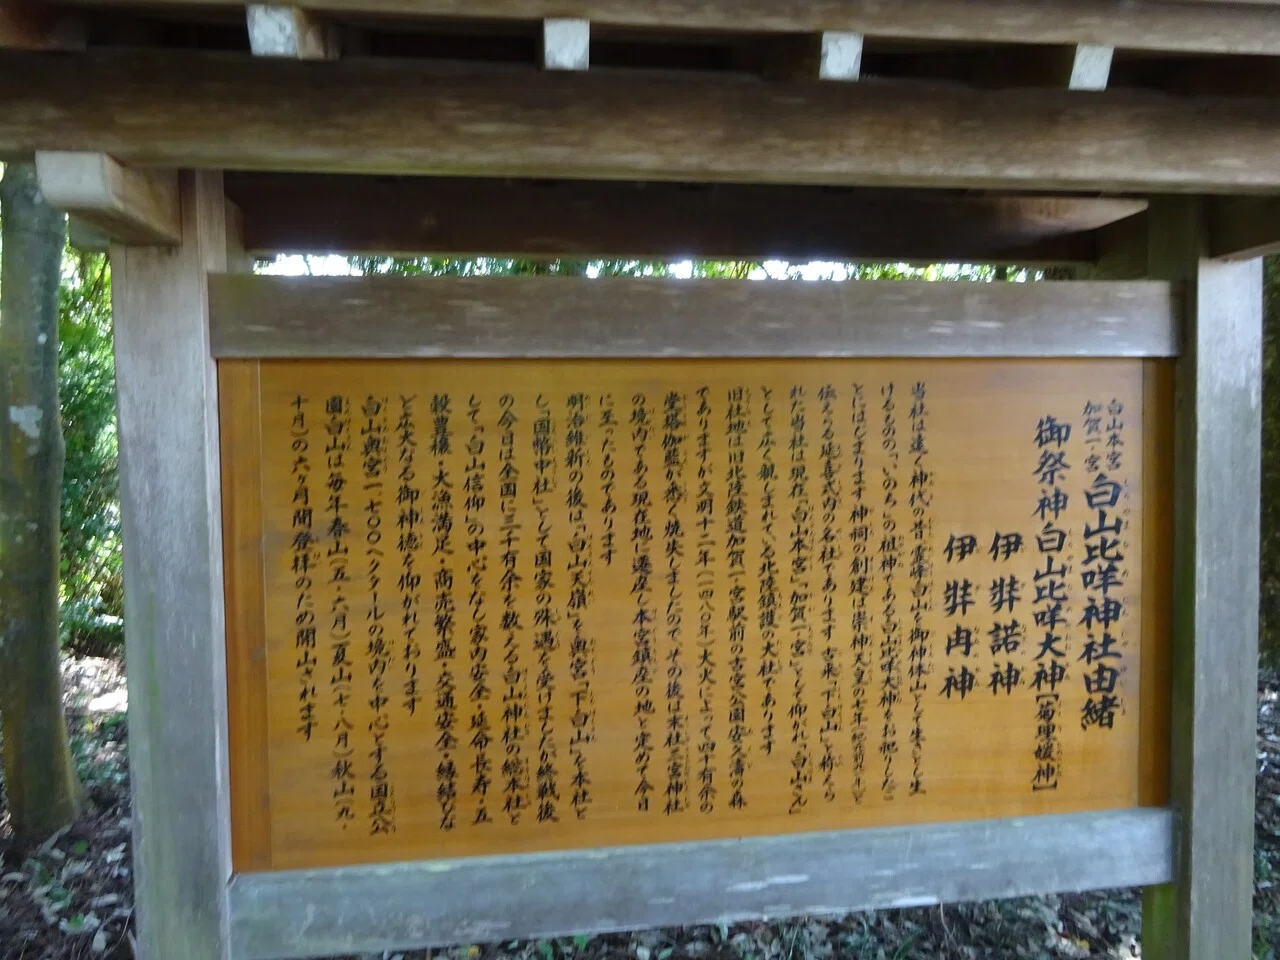 白山本宮
加賀一ノ宮
白山比咩神社由緒
御祭神白山比咩大神〔菊理媛神〕
伊弉諾神
伊弉冉神
当社は遠く神代の昔霊峰白山を御神体山として生きとし生
けるものの「いのち」の祖神である白山比咩大神をお祀りしたこ
とにはじまります神祠の創建は崇神天皇の七年
伝えらる延喜式内の名社であります古来「下白山」と称へら
れた当社は現在「白山本宮」「加賀一ノ宮」として仰がれ「白山さん」
として広く親しまれている北陸鎮護の大社であります
旧社地は旧北陸鉄道加賀一ノ宮駅前の古宮公園安久濤の森
でありますが文明十二年(一四八〇年)大火によって四十有余の
堂塔伽藍が悉く焼失しましたので、その後は末社三宮神社
の境内である現在地に遷座し本宮鎮座の地と定めて今日
に至ったものであります
明治維新の後は「白山天嶺」を奥宮「下白山」を本社と
し「国幣中社」として国家の殊遇を受けましたが終戦後
の今日は全国に三千有余を数える白山神社の総本社と
して「白山信仰」の中心をなし家内安全・延命長寿・五
穀豊穣・大漁満足・商売繁盛・交通安全・縁結びな
ど広大なる御神徳を仰がれております
白山奥宮一、七〇〇ヘクタールの境内を中心とする国立公
園白山は毎年春山(五・六月)夏山(七・八月)秋山(九・
十月)の六ヶ月間登拝のため開山されます